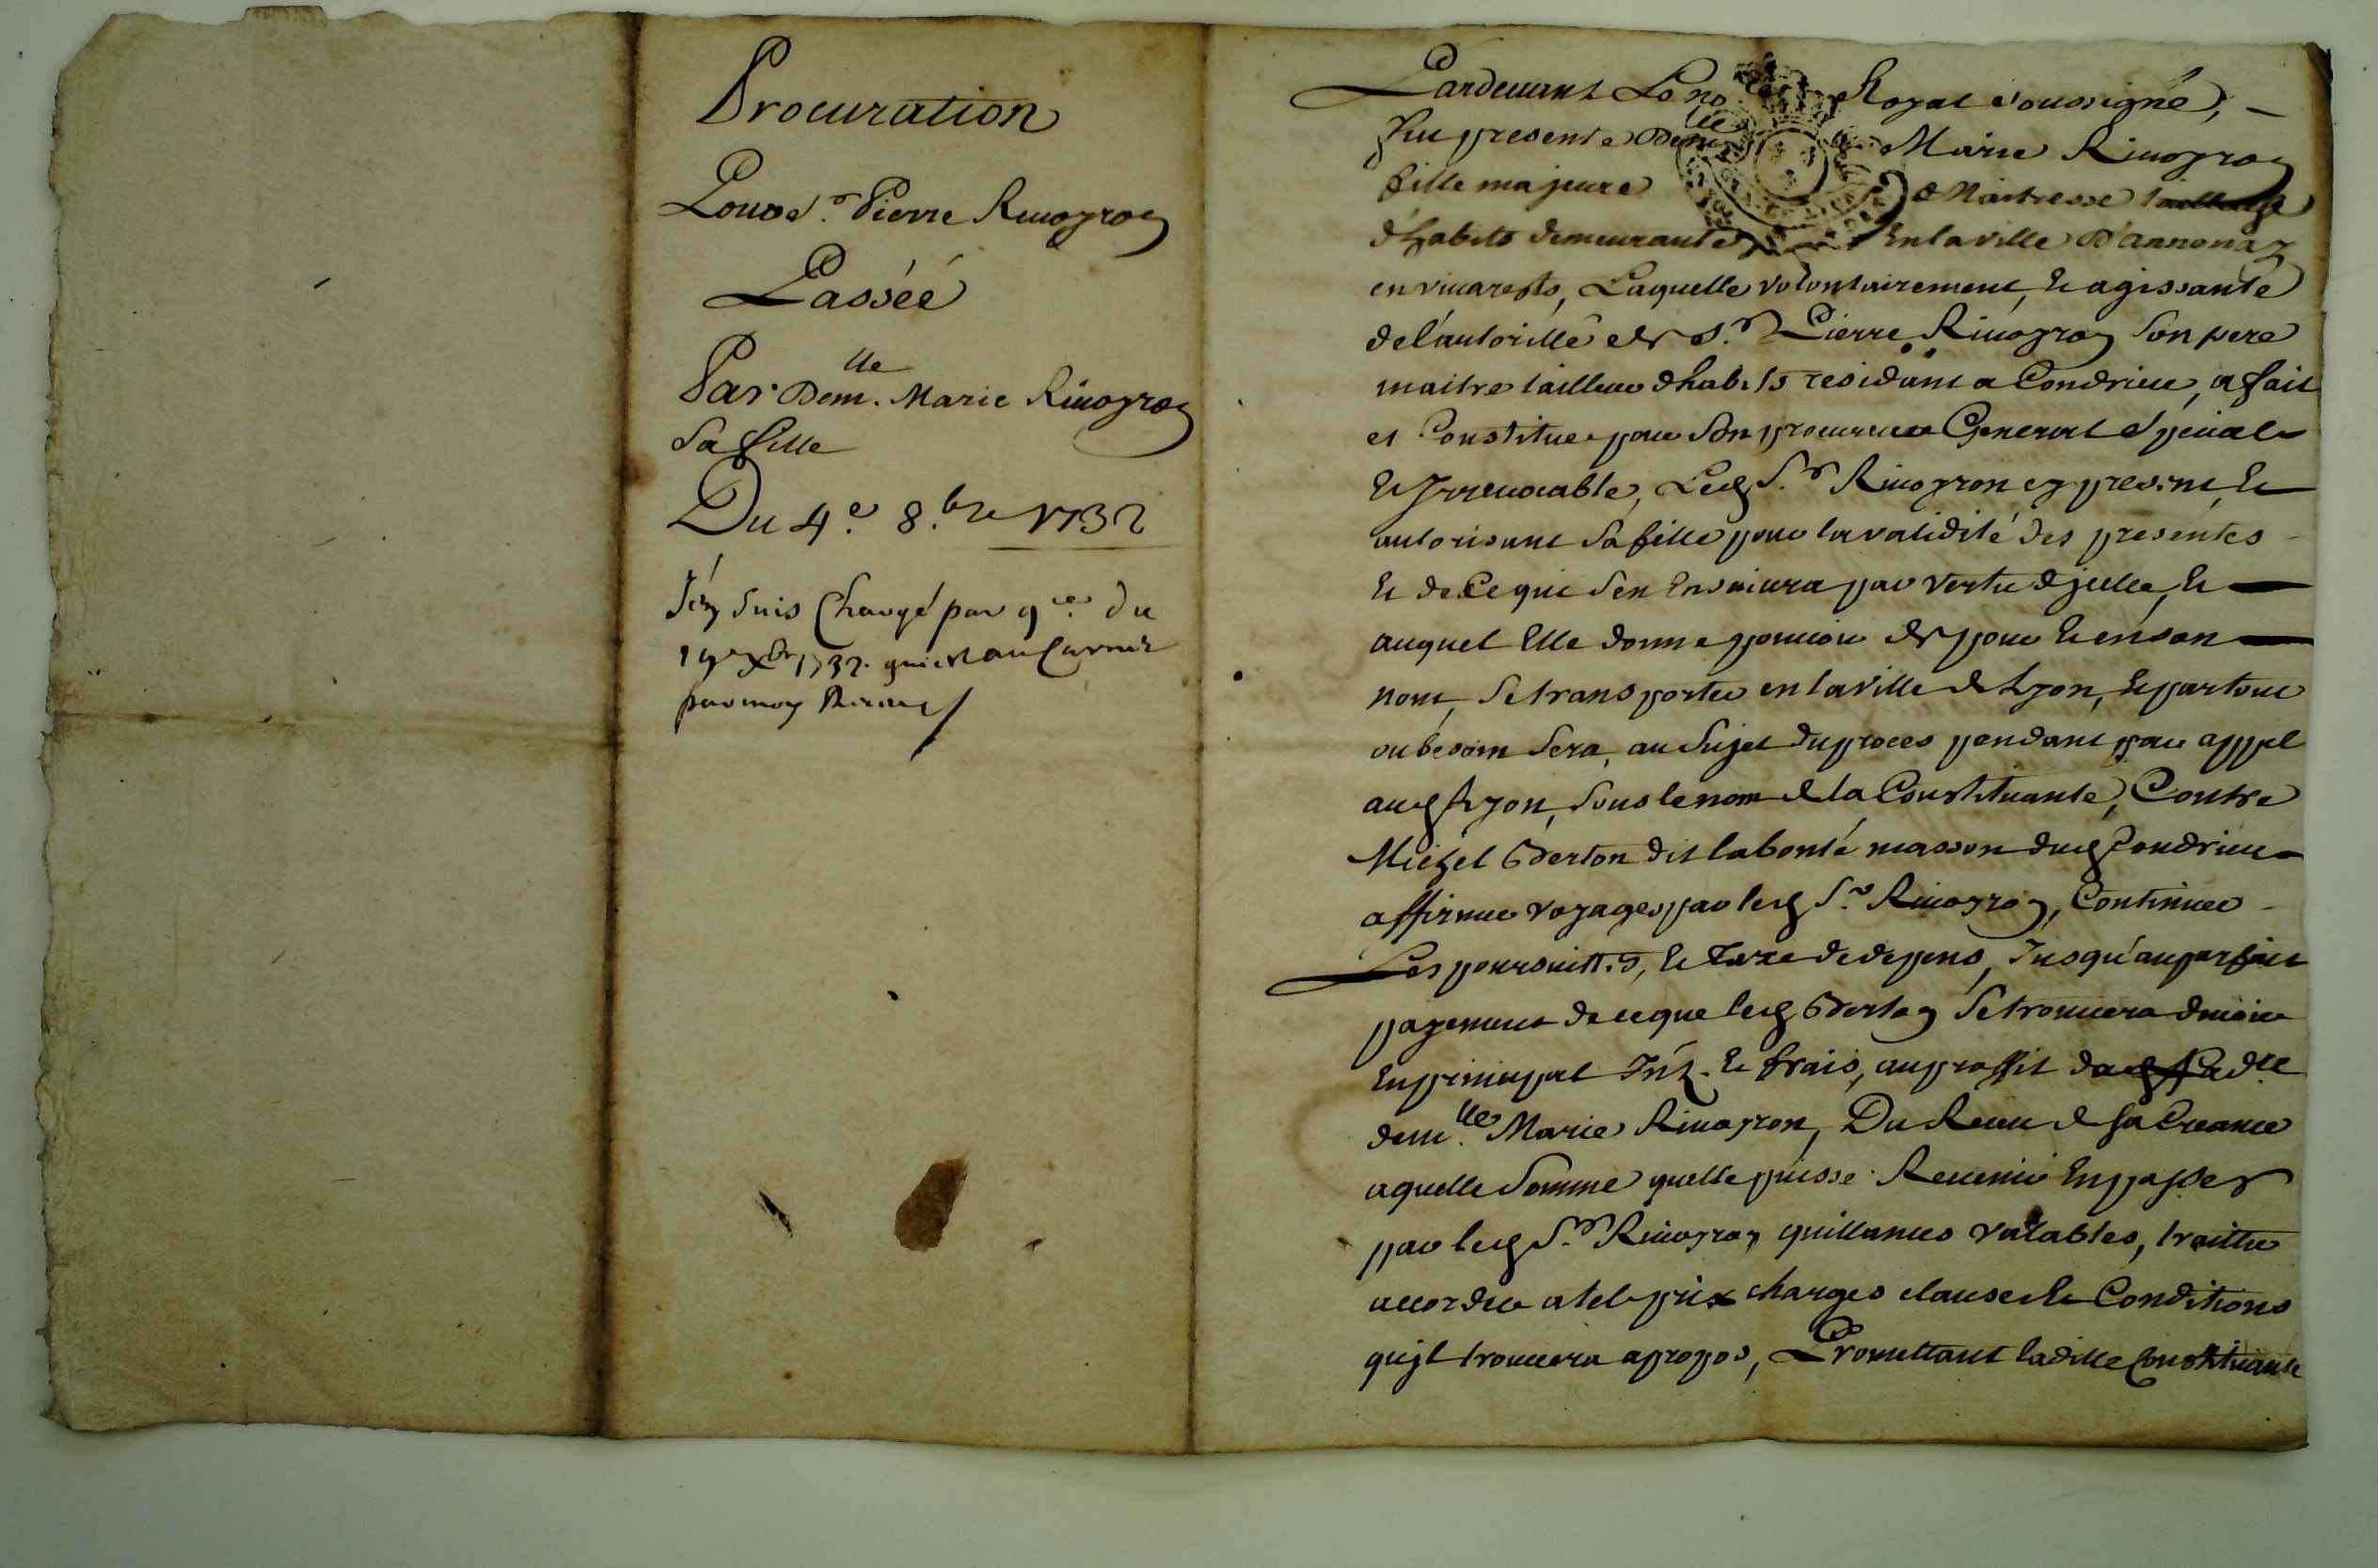 Procuration
Pour Sr. Pierre Rivoyron
Passéé
Par Demlle. Marie Rivoyron
Sa fille
Du 4e. 8.bre 1732
J'en suis Chargé par
du
19e xbr 1732. qui est au
par moy
Pardevant Le no.re Royal soussigné,
fut presente Demlle Marie Rivoyron
fille majeure & Maitresse tailleuse
d'habits demeurante En la ville D'annonay
en vivarests, Laquelle volontairement, et agissante
de l'autorillé de S.r Pierre Rivoyron Son pere
maitre tailleur dhabits residant a Condrieu, a fait
et Constitue pour Son procureur General Special
et Jrrevocable, Led S.r Rivoyron cy present, et
autorisant Sa fille pour la validité des presentes
et de Ce qui S'en Ensuivra par vertu djcelle, et
auquel Elle donne pouvoir de pour et en son
nom, Se transporter en la ville de Lyon, et partout
ou besoin Sera, au Sujet du proces pendant par appel
aud Lyon, Sous le nom de la Constituante, Contre
Michel Berton dit labonté masson dud Condrieu
affirmer voyages par led S.r Rivoyron, Continuer
Les poursuittes, et taxe de depens, Jusqu'au parfait
payement de ce que led Berton Se trouvera devoir
En principal Int. et frais, au proffit de lad.te
dem.lle Marie Rivoyron, Du Recu de sa Creance
a quelle Somme quelle puisse Revenir En passer
par led S.r Rivoyron quittances valables, traitter
accorder a tel prix charges clauses et Conditions
qu'jl trouvera apropos, Promettant laditte Constituante